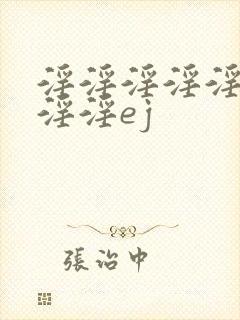 淫淫淫淫淫
淫淫ej
張治中